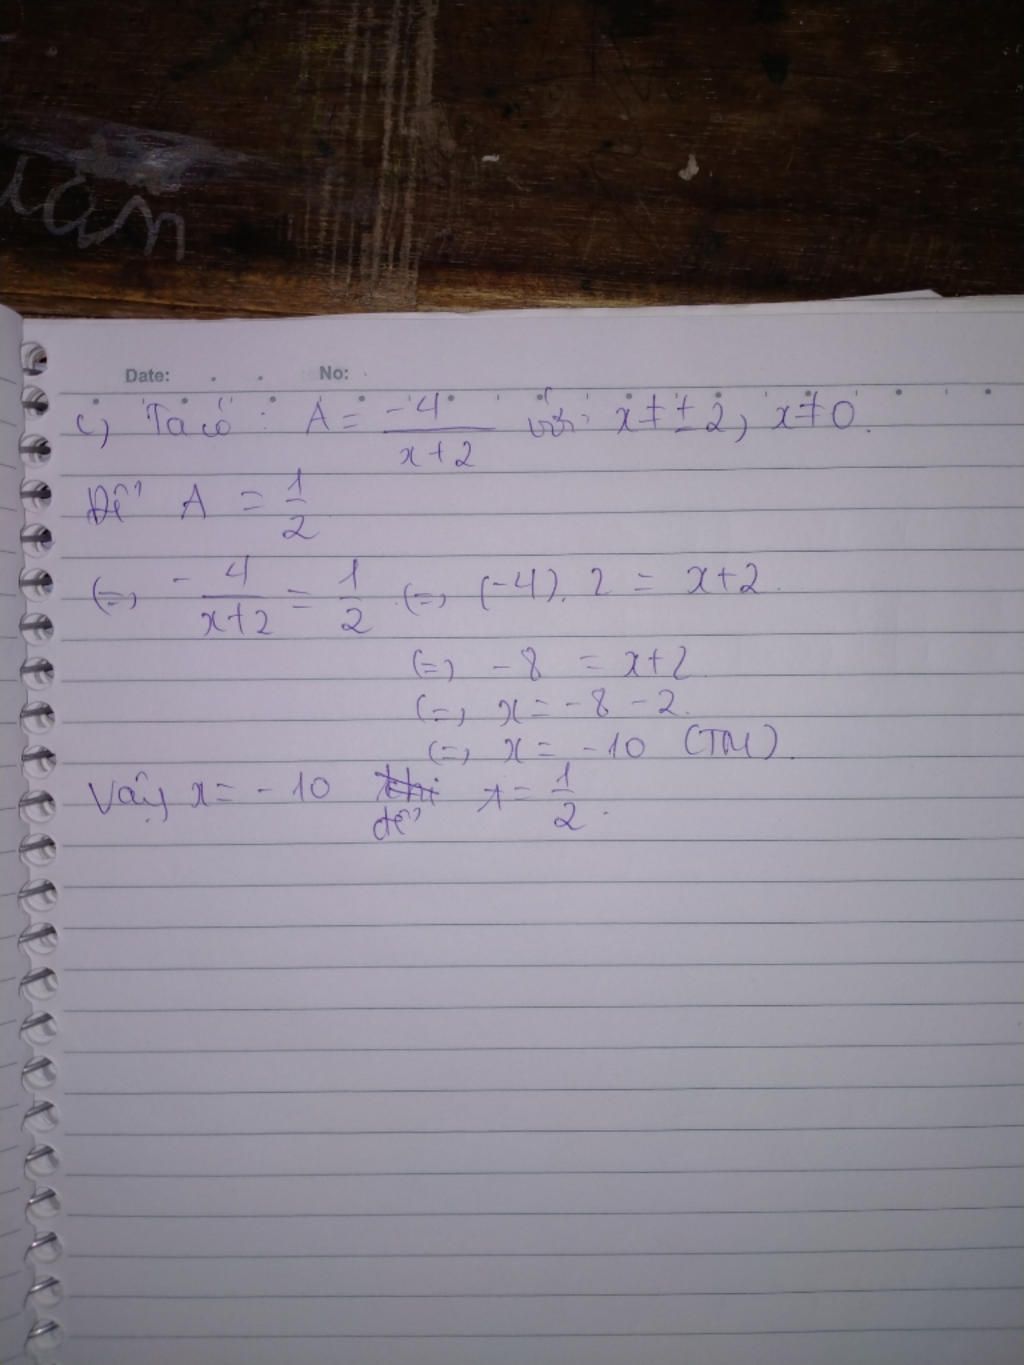 uân
Date: . . No: .
c, Ta có : A = -4/(x+2) với x ≠ ± 2, x ≠ 0.
Để A = 1/2
(=, - 4/(x+2) = 1/2 (=, (-4). 2 = x+2.
(=, -8 = x+2
(=, x = -8 -2.
(=, x = -10 (TM).
Vậy x = -10 để A = 1/2.